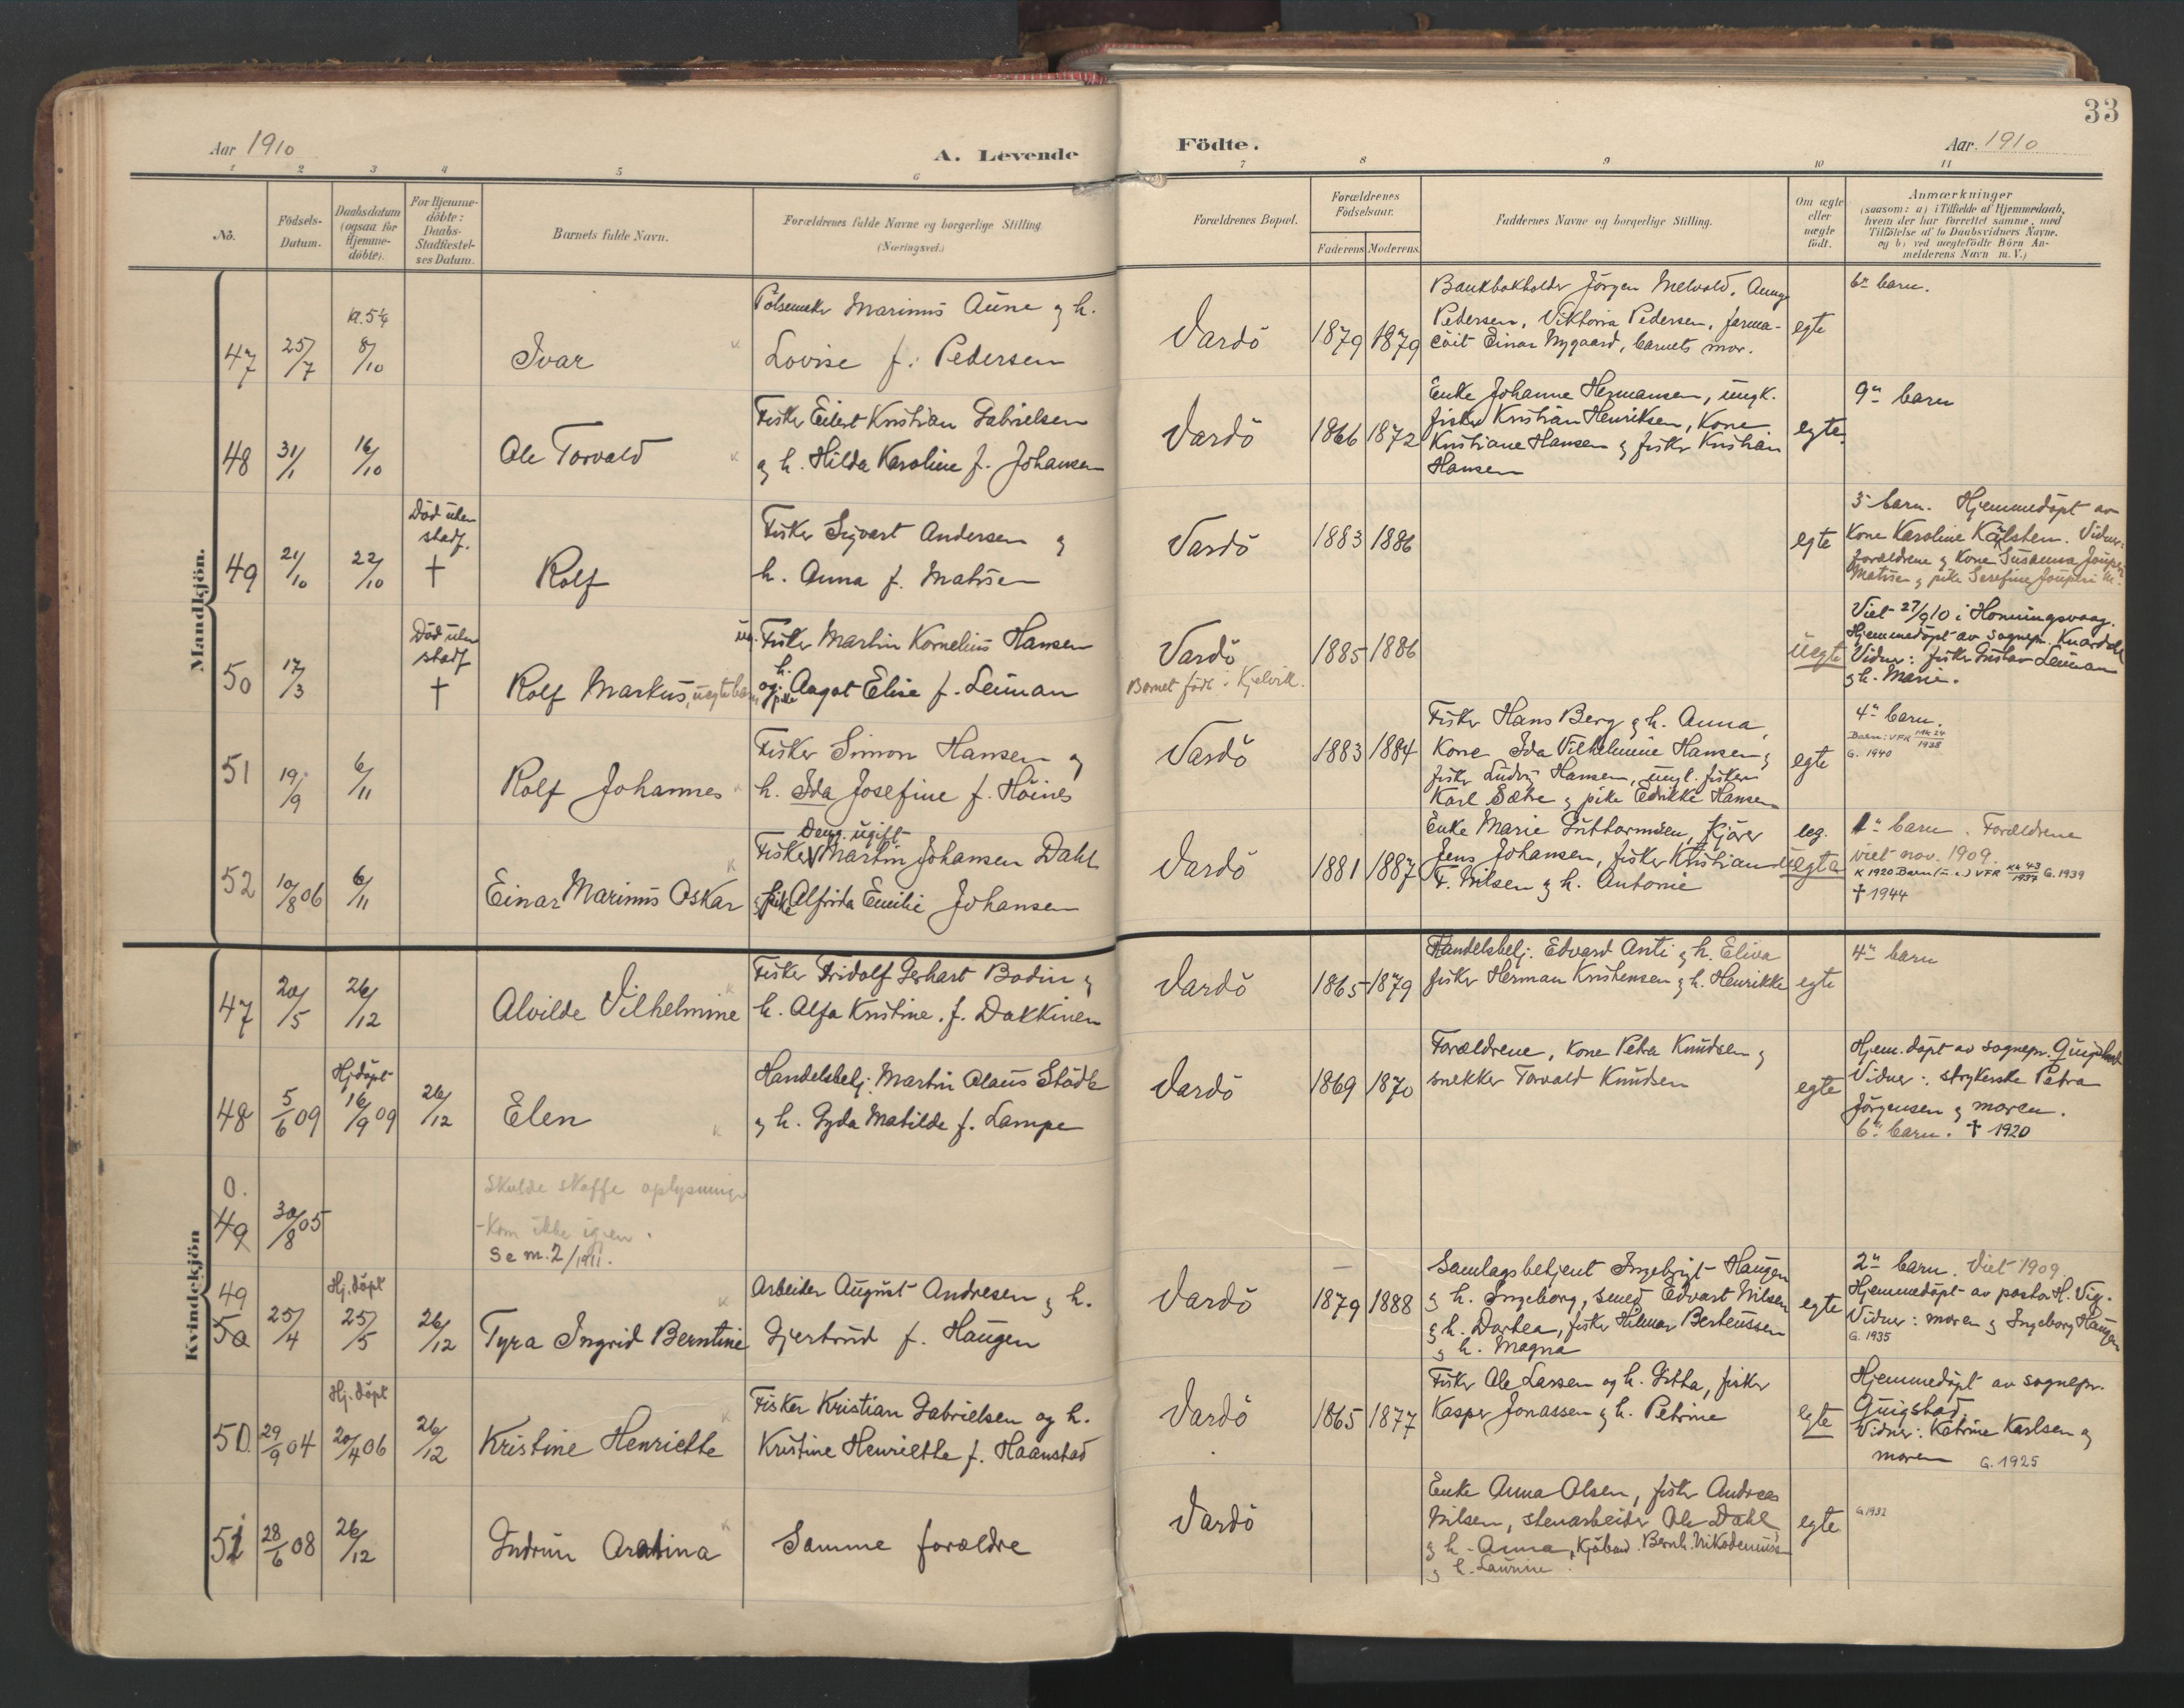 33
Aar 1910
A. Levende
Födte.
Aar. 1910
1 2 3 4 5 6 7 8 9 10 11
No.
Födsels-
Datum.
Daabsdatum
(ogsaa for
Hjemme-
döbte).
For Hjemme-
döbte:
Daabs-
Stadfæstel-
ses Datum.
Barnets fulde Navn.
Forældrenes fulde Navne og borgerlige Stilling
(Næringsvei.)
Forældrenes Bopæl.
Forældrenes
Födselsaar.
Faderens Moderens
Faddernes Navne og borgerlige Stilling.
Om ægte
eller
uægte
födt.
Anmærkninger
(saasom: a) i Tilfælde af Hjemmedaab,
hvem der har forrettet samme, med
Tilföielse af to Daabsvidners Navne.
og b) ved uægtefödte Börn An-
melderens Navn m. V.)
Mandkjön.
47
25/7
kl. 5 1/4
8/10
Ivar
Pölsemaker Marinus Aune og h.
Lovise f: Pedersen
Vardö
1879 1879
Bankbokholder Jörgen Melvold, Aunge
Pedersen, Viktoria Pedersen, farma-
cöit Einar Nygaard, barnets mor.
egte
6te barn.
48
31/1
16/10
Ole Torvald
Fisker Eilert Kristian Gabrielsen
og h. Hilda Karoline f. Johansen
Vardö
1866 1872
Enke Johanne Hermansen, ungk.
fisker Kristian Henriksen, Kone
Kristiane Hansen og fisker Kristian
Hansen
egte.
9de barn
49
21/10
22/10
Död uten
stadf.
†
Rolf
Fisker Sigvart Andersen og
h. Anna f. Matisen
Vardö
1883 1886
egte
3 barn. Hjemmedöpt av
Kone Karoline Kälsten. Vidner:
forældrene og Kone Susanna Jouperi
Matisen og pike Serefine Jouperi M.
50
17/3
Död uten
stadf
†
Rolf Markus, uegte barn
ug. Fisker Martin Kornelius Hansen
h.
og pike Aagot Elise f. Leiman
Vardö
Barnet födt i Kjelvik.
1885 1886
Uegte
Viet 27/9 10 i Honningsvaag.
Hjemmedöpt av sognepr. Knardahl
Vidner: fisker Gustav Leiman
og h. Marie.
51
19/9
6/11
Rolf Johannes
Fisker Simon Hansen og
h. Ida Josefine f. Höines
Vardö
1883 1884
Fisker Hans Berg og h. Anna,
Kone Ida Vilhelmine Hansen og
fisker Ludvig Hansen, ungk. fisker
Karl Sætre og pike Edrikke Hansen
egte
4de barn.
Barn: VFR Mk 24/1938
G. 1940
52
10/8 06
6/11
Einar Marinus Oskar
Daug. ugift
Fisker Martin Johansen Dahl
og pike Alfrida Emilie Johansen
Vardö
1881 1887
Enke Marie Guttormsen, Kjörer
Jens Johansen, fisker Kristian
F. Nilsen og h. Antonie
leg.
uegta
1ste barn. Forældrene
viet nov. 1909.
K 1920 Barn (u.e.) VFR Kk 43/1937 G. 1939
† 1944
Kvindekjön
47
20/5
26/12
Alvilde Vilhelmine
Fisker Fridolf Gerhart Bodin og
h. Alfa Kristine. f. Dakkinen
Vardö
1865 1879
Handelsbetj. Edvard Anti og h. Eliva
fisker Herman Kristensen og h. Henrikke
egte
4de barn
48
5/6 09
Hj. döpt
16/9 09
26/12
Elen
Handelsbetj. Martin Olaus Stödle
og h. Gyda Matilde f. Lampe
Vardö
1869 1870
Forældrene, Kone Petra Knudsen og
snekker Torvald Knudsen
egte
Hjem. döpt av sognepr. Quigstad
Vidner: strykerske Petra
Jörgensen og moren.
6te barn. † 1920
0.
49
30/8 05
Skulde skaffe oplysninger
- Kom ikke igjen.
Se m. 2/1911.
49
50
25/4
Hj. döpt
25/5
26/12
Tyra Ingrid Berntine
Arbeider August Andresen og h.
Gjertrud f. Haugen
Vardö
1879 1888
Samlagsbetjent Ingebrigt Haugen
og h. Ingeborg, smed Edvart Nilsen
og h. Dortea, fisker Hilmar Berteussen
og h. Magna
egte
2det barn. Viet 1909
Hjemmedöpt av pastor H. Vig.
Vidner: moren og Ingeborg Haugen
G. 1935
50
29/9 04
Hj. döpt
20/4 06
26/12
Kristine Henriette
Fisker Kristian Gabrielsen og h.
Kristine Henriette f. Haanstad
Vardö
1865 1877
Fisker Ole Larsen og h. Gitta, fisker
Kasper Jonassen og h. Petrine
egte
Hjemmedöpt av sognepr.
Quigstad.
Vidner: Katrine Karlsen og
moren G. 1925
51
28/6 08
26/12
Gudrun Aratina
Samme forældre
Vardö
Enke Anna Olsen, fisker Andreas
Nilsen, stenarbeider Ole Dahl
og h. Anna, Kjöbmd. Bernh. Nikodemussen
og h. Laurine.
egte
G. 1932